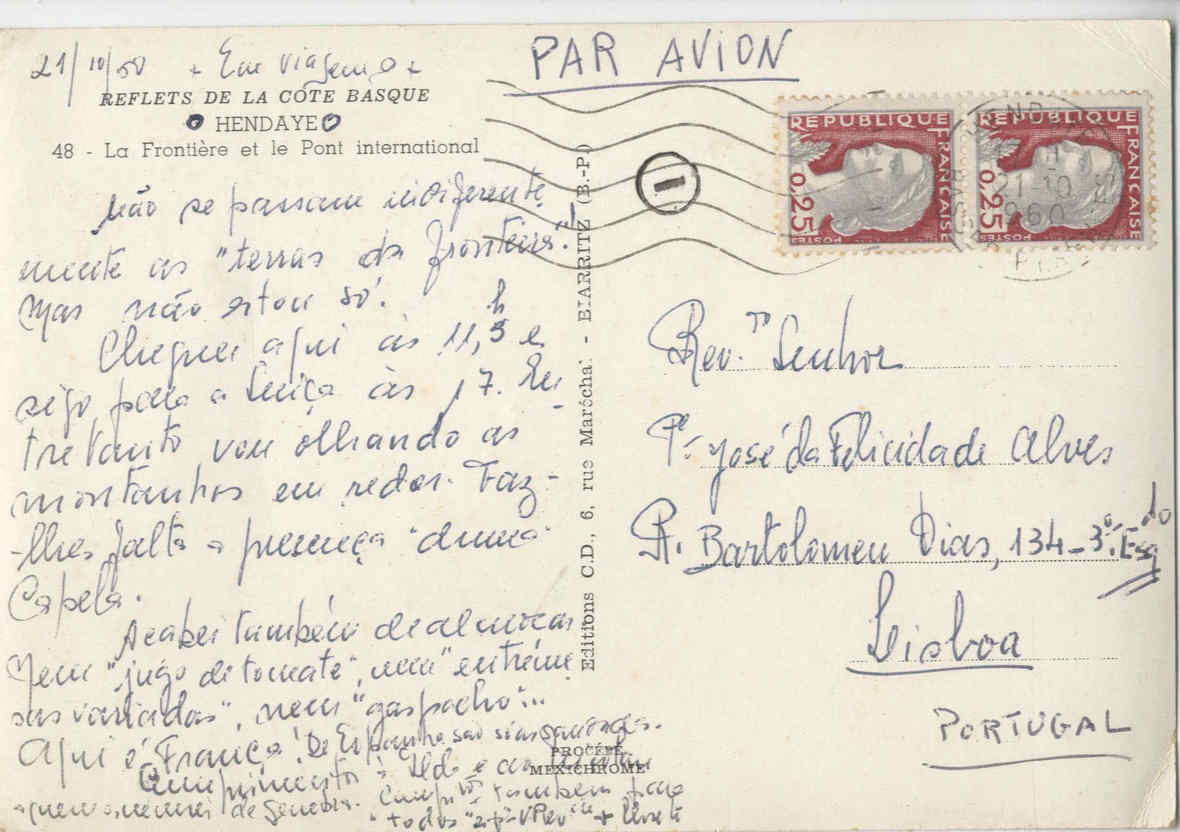 21/10/60 + Em viagem +
PAR AVION
REFLETS DE LA CÔTE BASQUE
HENDAYE
48 - La Frontière et le Pont international
não se passam indiferente
mente as "terras da fronteira"!
Mas não estou só.
Cheguei aqui às 11,5 h e
sigo para a Suiça às 17. En-
tretanto vou olhando as
montanhas em redor. Faz-
-lhes falta a presença duma
Capela.
Acabei também de almoçar
Nem "jugo de tomate", nem "entreme
ses variados", nem "gaspacho"...
Aqui é França! De Espanha são
Cumprimentos
de Genebra. também para
todos
Editions C.D., 6, rue Maréchal - BIARRITZ (B.-P.)
PROCÉDÉ
MEXICHROME
I
REPUBLIQUE FRANÇAISE
0,25
POSTES
REPUBLIQUE FRANÇAISE
0,25
POSTES
21-10
1960
Rev.mo Senhor
Pe. José da Felicidade Alves
R. Bartolomeu Dias, 134-3º. Esq.do
Lisboa
PORTUGAL